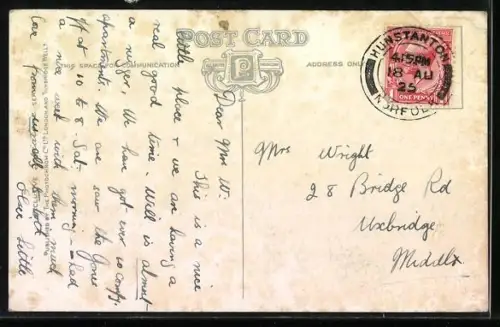 POST CARD
THIS SPACE FOR COMMUNICATION
ADDRESS ONLY
HUNSTANTON
4.15PM
18 AU
25
NORFOLK
ONE PENNY
Dear Mrs W.
This is a nice
little place & we are having a
real good time. Will is almost
a nigger, We have got ever so comfy
apartments. We are
off at 10 to 8. Sat. morning - had
a nice with them much
love from us all to both
Your little
Mrs Wright
28 Bridge Rd
Uxbridge
Middlx